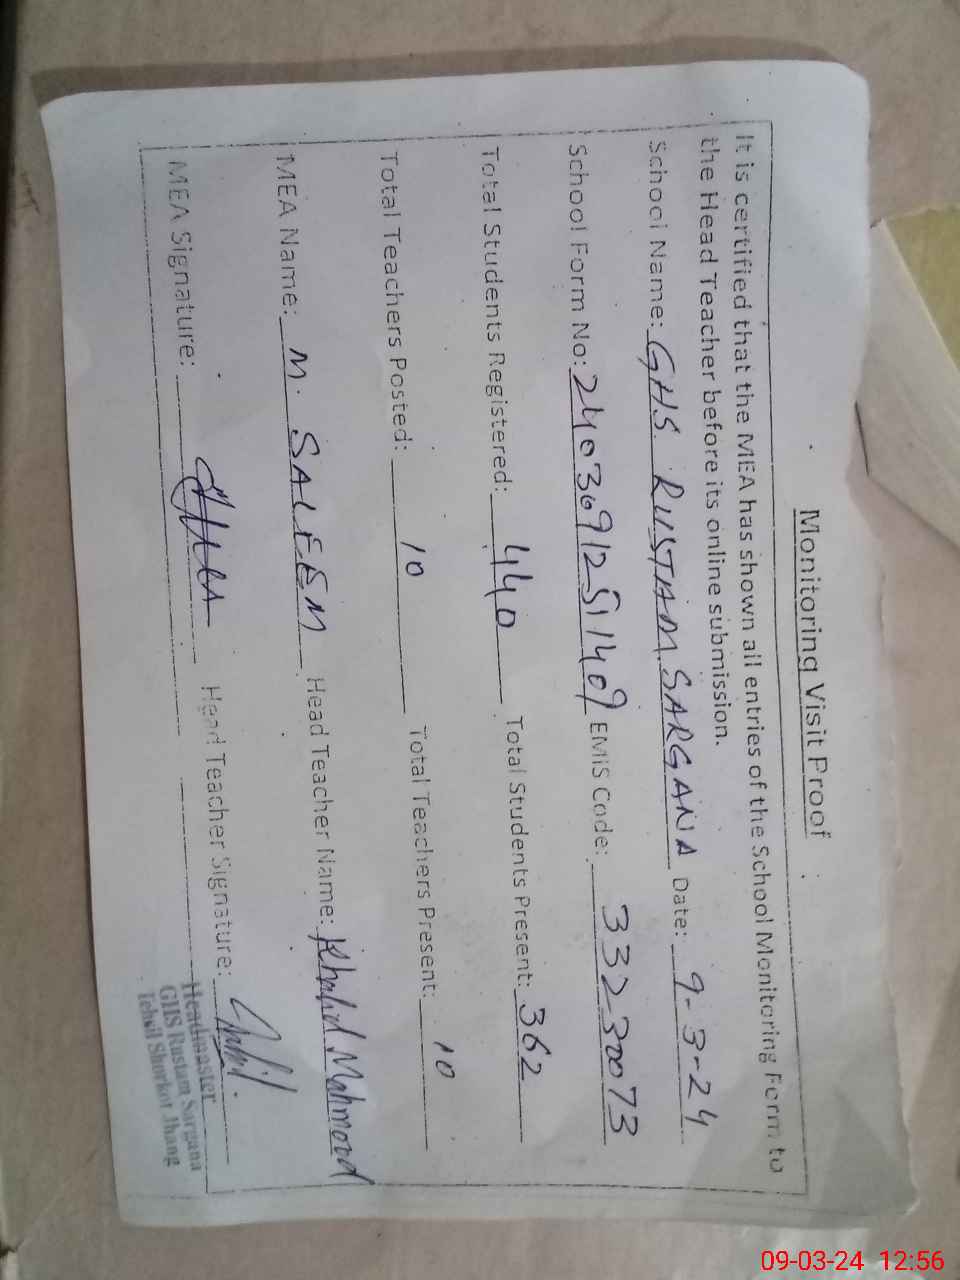 Monitoring Visit Proof
It is certified that the MEA has shown all entries of the School Monitoring Form to
the Head Teacher before its online submission.
School Name: GHS RUSTAM SARGANA Date: 9-3-24
School Form No: 2403091251409 EMIS Code: 33230073
Total Students Registered: 440 Total Students Present: 362
Total Teachers Posted: 10 Total Teachers Present: 10
MEA Name: M. SALEEM Head Teacher Name: Khalid Mahmood
MEA Signature: Head Teacher Signature:
Headmaster
GHS Rustam Sargana
Tehsil Shorkot Jhang
09-03-24 12:56